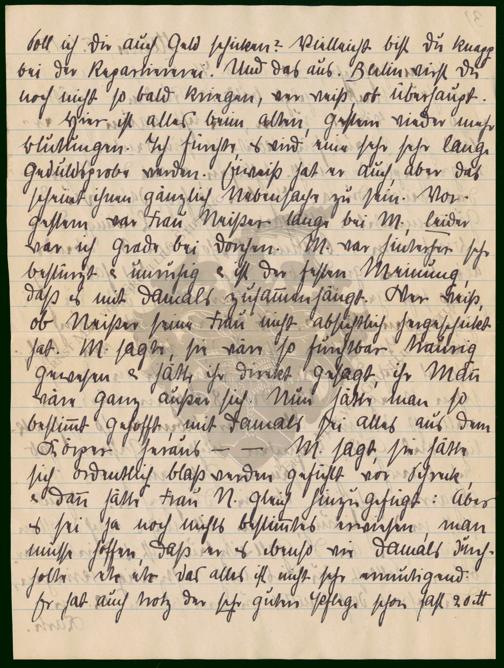 Soll ich Dir auch Geld schicken? Vielleicht bist Du knapp
bei der Repariererei. Und das aus Berlin wirst Du
noch nicht so bald kriegen, wer weiß ob überhaupt.
Hier ist alles beim alten, gestern wieder mehr
Blutungen. Ich fürchte es wird eine sehr sehr lange
Geduldsprobe werden. Eiweiß hat er auch, aber das
scheint ihnen gänzlich Nebensache zu sein. Vor-
gestern war Frau Neißer lange bei M., leider
war ich grade bei Dorchen. M. war hinterher sehr
bestürzt & unruhig & ist der festen Meinung,
daß es mit damals zusammenhängt. Wer weiß,
ob Neißer seine Frau nicht absichtlich hergeschickt
hat. M. sagte, sie wäre so furchtbar traurig
gewesen & hätte ihr direkt gesagt, ihr Mann
wäre ganz außer sich. Nun hätte man so
bestimmt gehofft, mit damals sei alles aus dem
Körper heraus — — M. sagt, sie hätte
sich ordentlich blaß werden gefühlt vor Schreck,
& dann hätte Frau N. gleich hinzugefügt: Aber
es sei ja noch nichts bestimmtes erwiesen, man
müsse hoffen, daß er es ebenso wie damals durch-
holte etc etc. Das alles ist nicht sehr ermutigend.
Er hat auch trotz der sehr guten Pflege schon fast 20 ℔